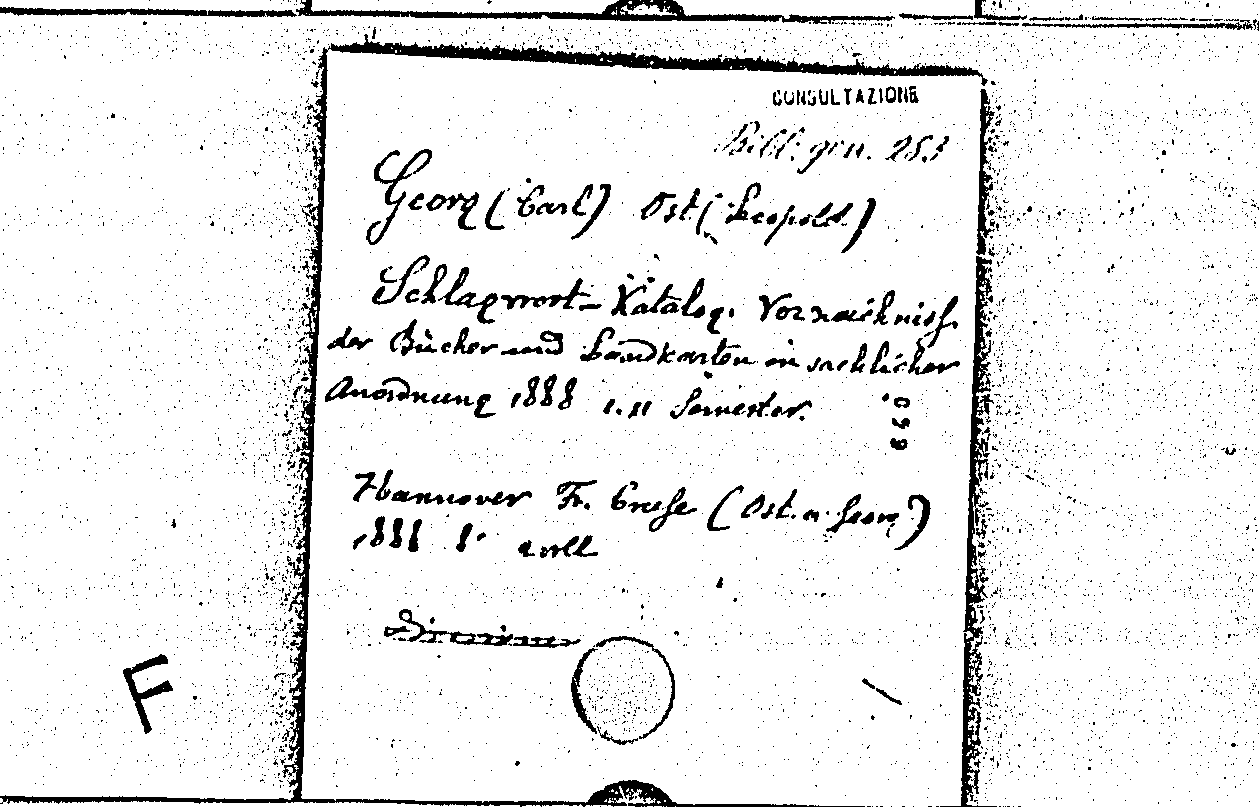 CONSULTAZIONE
Bibl: gen. 283
Georg (Carl) Ost (Leopold)
Schlagwort-Katalog. Verzeichniss
der Bücher und Landkarten in sachlicher
Anordnung 1888 1. 11 Semester.
Hannover Fr. Cruse (Ost. u. Georg)
1888 8°
F